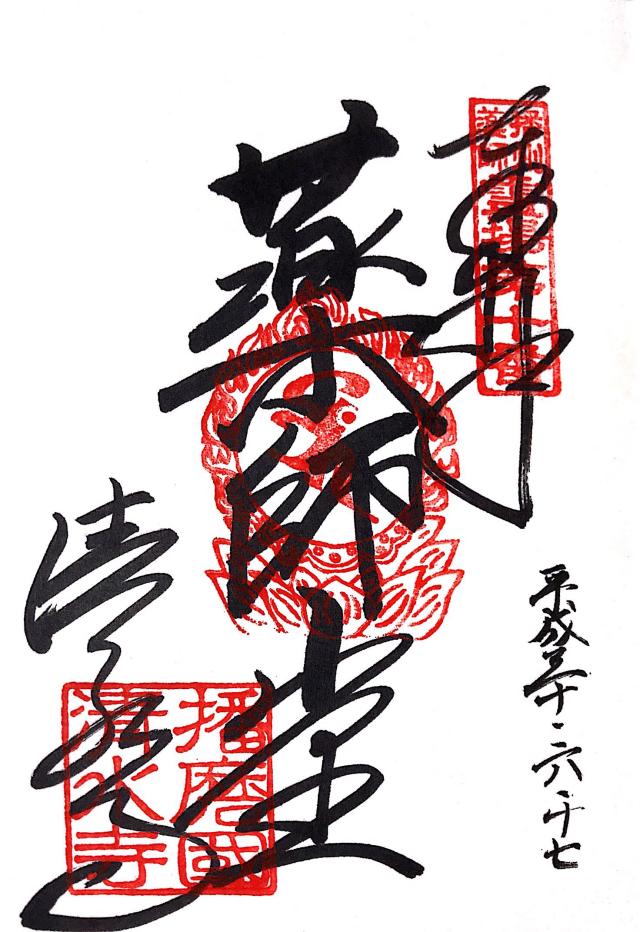 奉拝
薬師堂
清水寺
平成三十・六・十七
播磨國
清水寺